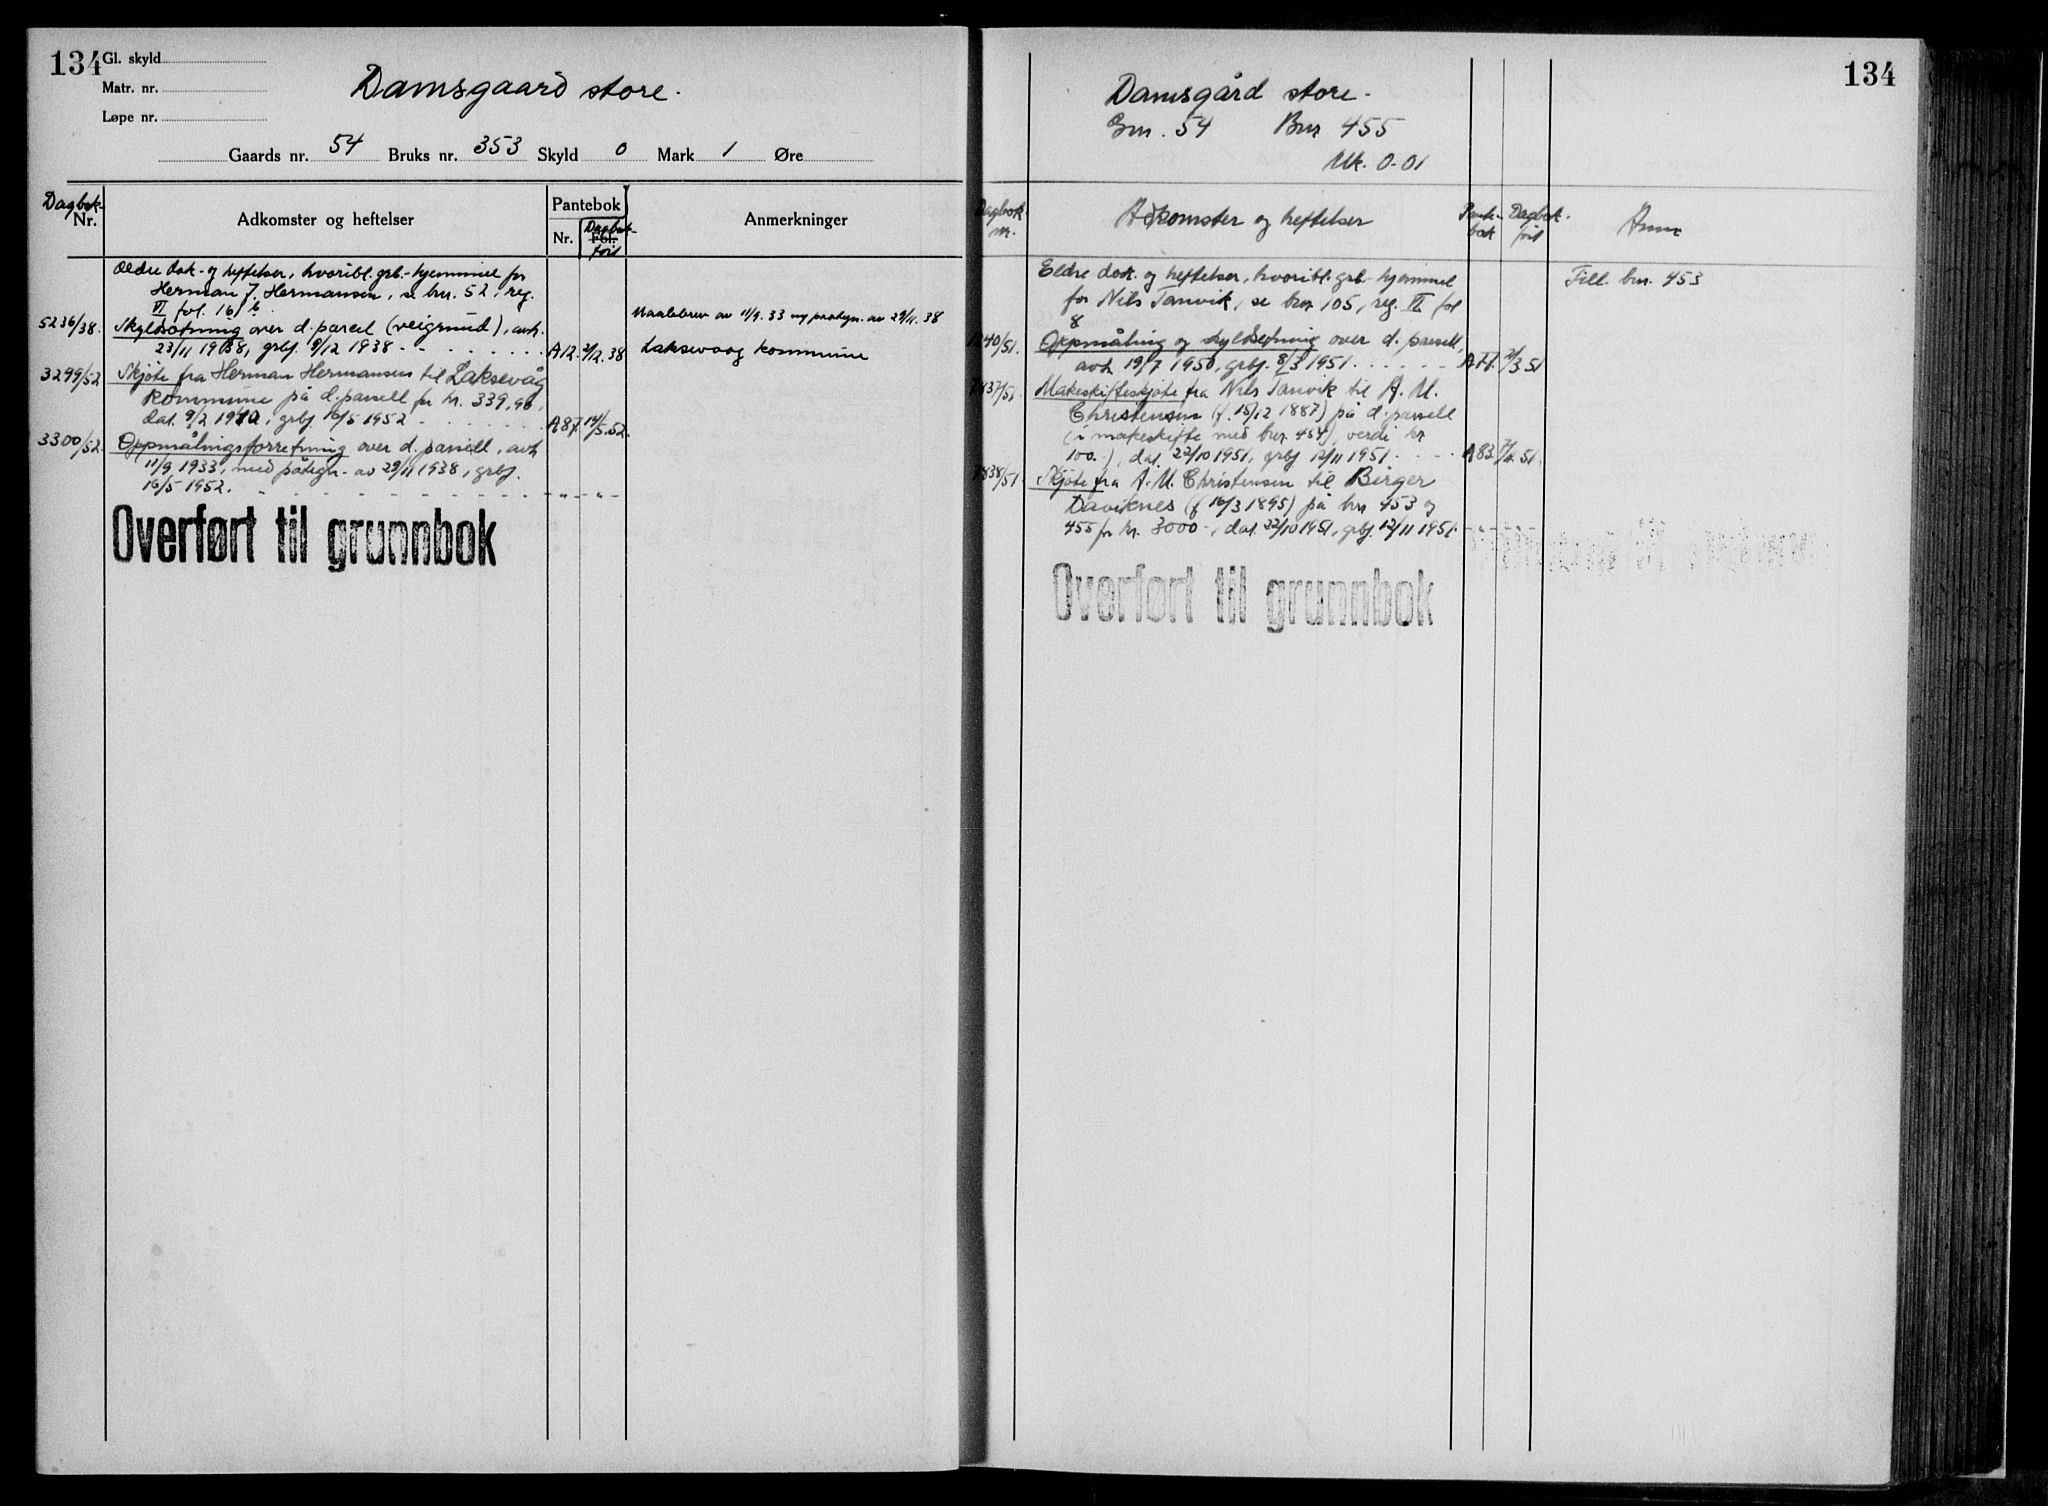 134
Gl. skyld
Matr. nr.
Løpe nr.
Damsgaard store.
Gaards nr. 54 Bruks nr. 353 Skyld 0 Mark 1 Øre
Dagbok- Nr.
Adkomster og heftelser
Pantebok
Nr.
Fol.
Dagbok-
ført
Anmerkninger
Ældre dok- og heftelser, hvoribl. grb.-hjemmel for
Herman J. Hermansen, se bnr. 52, reg.
VI fol. 16
5236/38. Skyldsetning over d. parcel (veigrund), avh.
23/11 1938, grbf. 9/12 1938 - A12. 38
Maalebrev av 11/9. 33 og paategn. av 29/11. 38
Laksevaag kommune
3299/52 Skjøte fra Herman Hermansen til Laksevåg
kommune på d. parsell for kr. 339,96,
dat. 9/2 1940, grbf. 16/5 1952 A87. 14/5.52.
3300/52 Oppmålingsforretning over d. parsell, avh
11/9 1933, med påtegn. av 29/11 1938, grbf.
16/5 1952. - " - " -
Overført til grunnbok
134
Damsgård store.
Gnr. 54 Bnr 455
Mk. 0-01
Dagbok
nr.
Adkomster og heftelser
Pante-
bok
Dagbok.
ført
Anm
Eldre dok. og heftelser, hvoribl. grb-hjemmel
for Nils Tanvik, se bnr 105, reg. VI fol
8
Till. bnr. 453
40/51. Oppmåling og skyldsetning over d. parsell,
avh 19/7 1950, grbf. 8/3 1951. 3 51
37/51. Makeskifteskjøte fra Nils Tanvik til A. M.
Christensen (f. 15/12 1887) på d. parsell
(i makeskifte med bnr. 454), verdi kr
100.-), dat. 22/10 1951, grbf 12/11 1951. A83. 51.
838/51. Skjøte fra A. M. Christensen til Birger
Daviknes (f 16/3 1895) på bnr 453 og
455 for kr. 3000.-, dat. 22/10 1951, grbf. 12/11 1951.
Overført til grunnbok